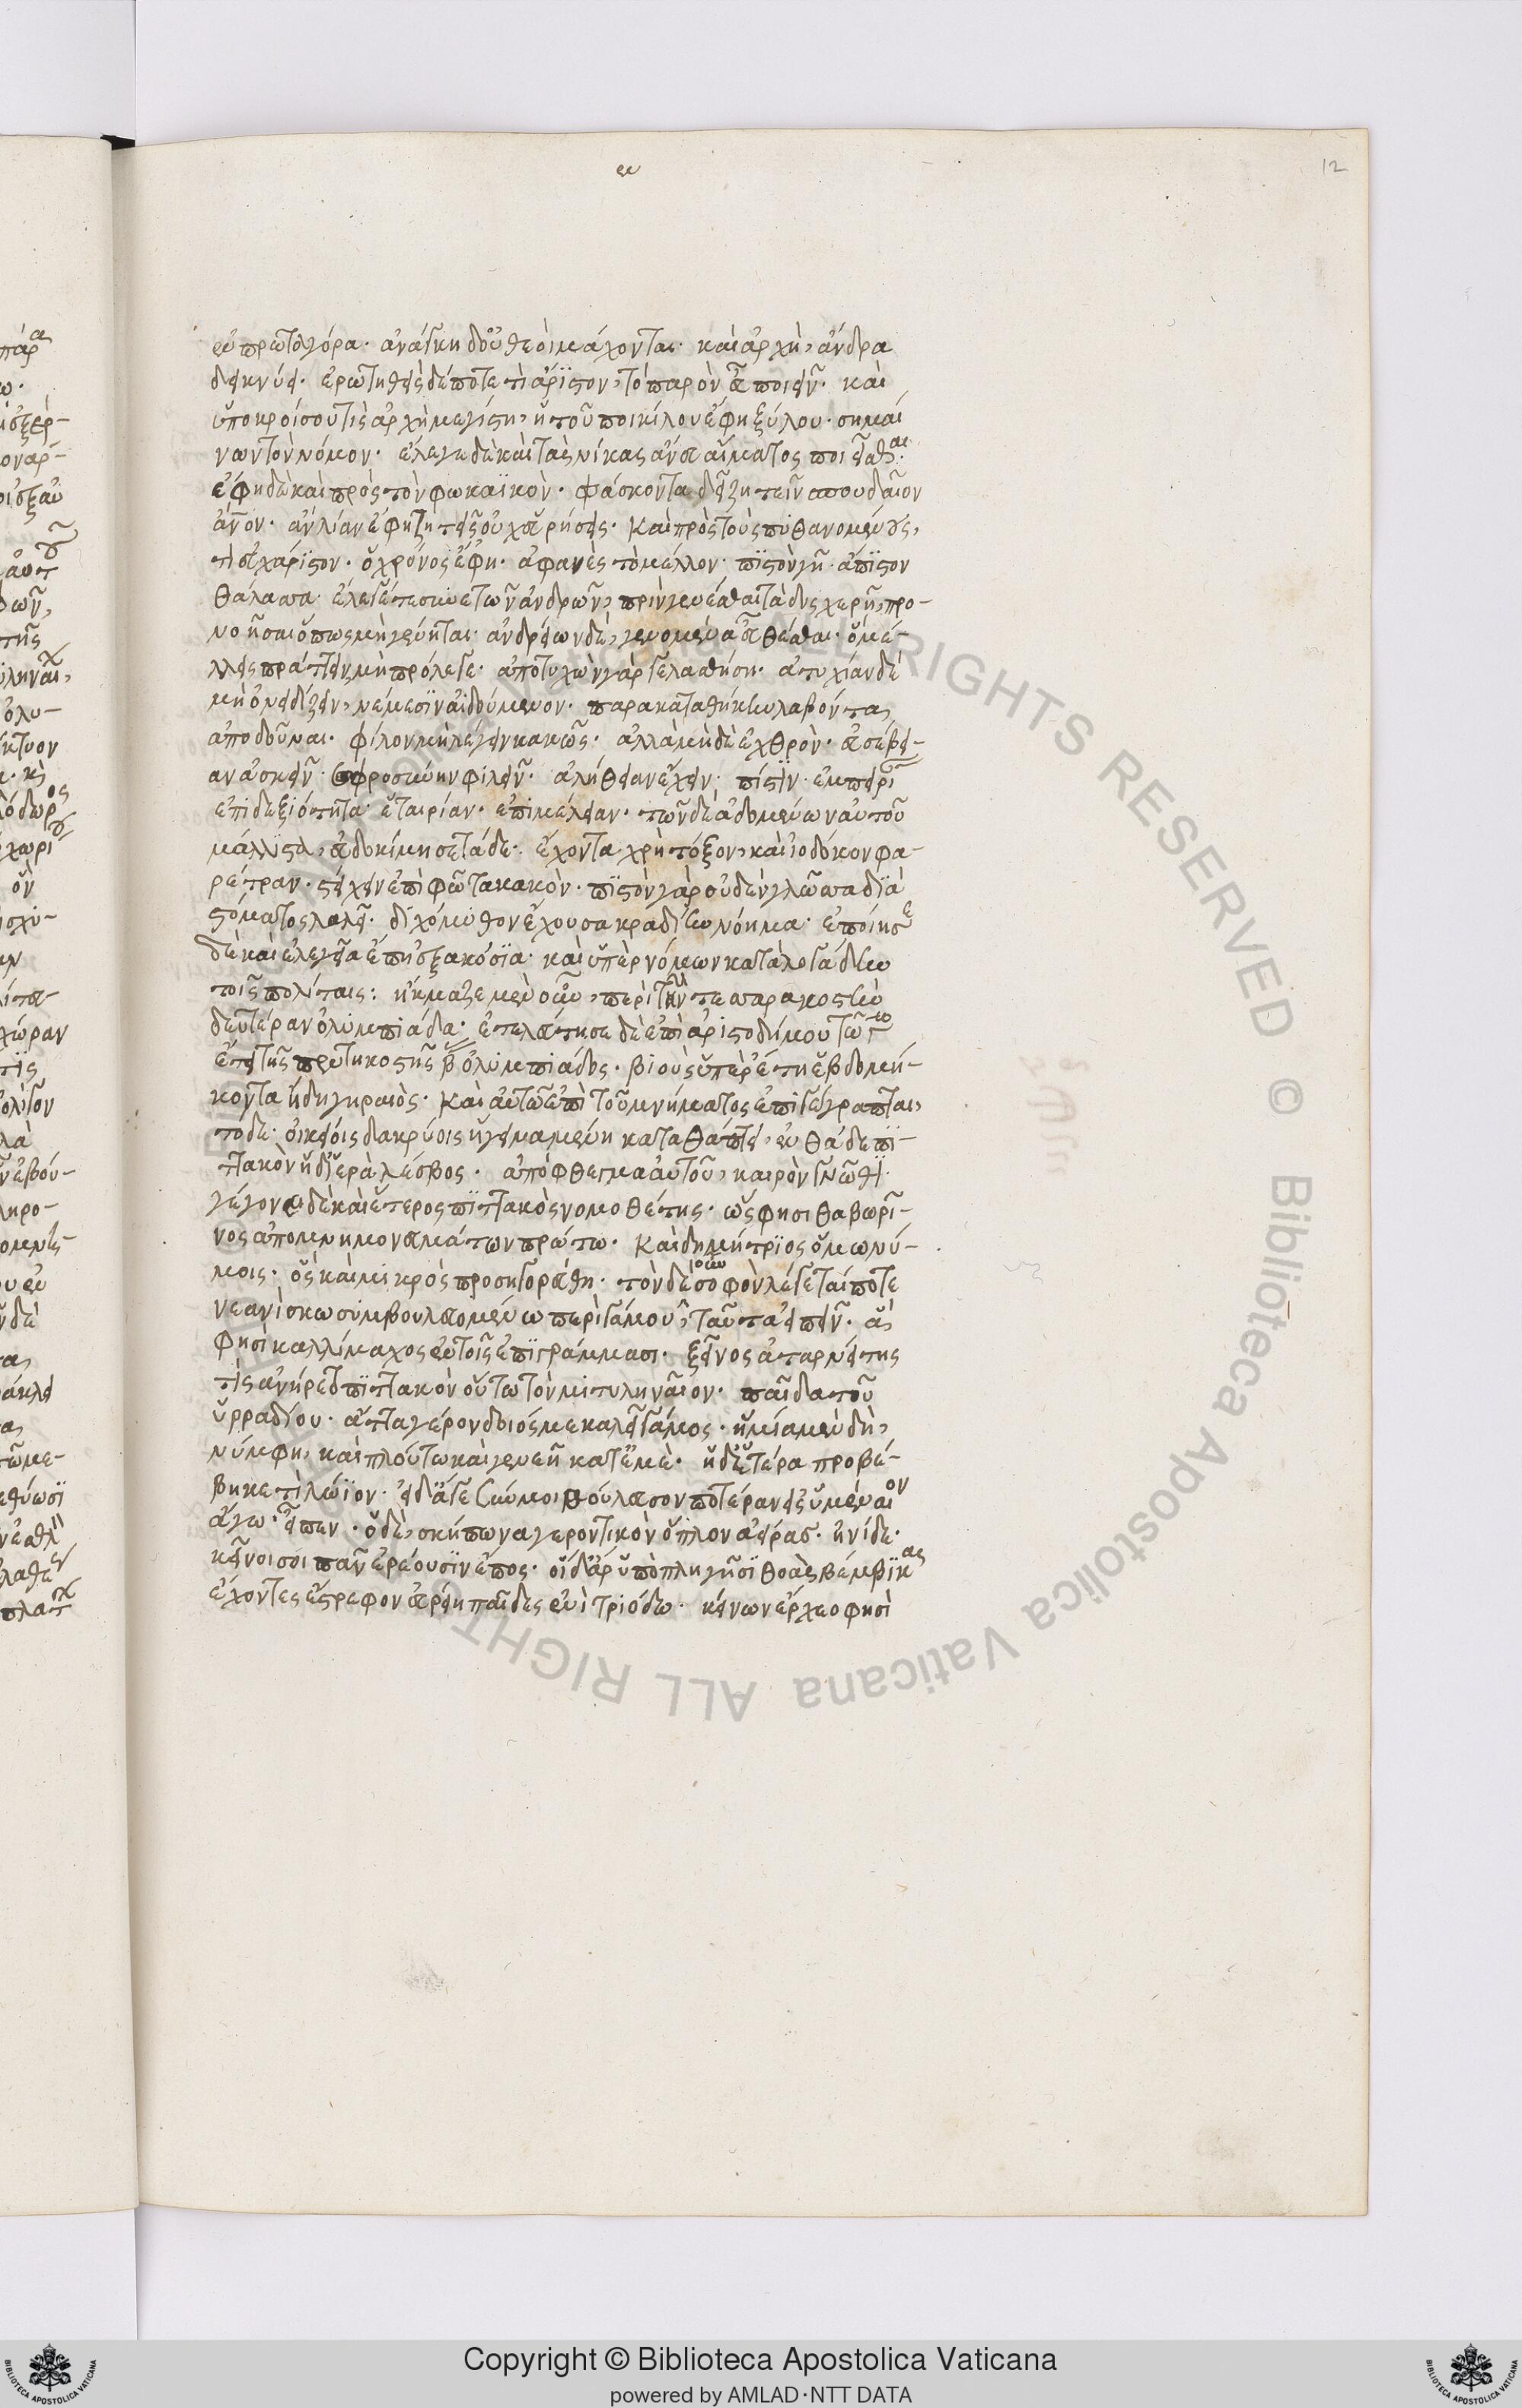 12
ἐν πρωταγόρα. ἀνάγκη δ' οὐ θεοὶ μάχονται. καὶ ἀρχὴ, ἄνδρα
δείκνυσι. ἐρωτηθεὶς δέ ποτε τί ἄριστον, τὸ παρὸν εὖ ποιεῖν. καὶ
ὑπὸ κροίσου τίς ἀρχὴ μεγίστη, ἡ τοῦ ποικίλου ἔφη ξύλου. σημαί
νων τὸν νόμον. ἔλεγε δὲ καὶ τὰς νίκας ἄνευ αἵματος ποιεῖσθαι.
ἔφη δὲ καὶ πρὸς τὸν φωκαϊκὸν. φάσκοντα δεῖ ζητεῖν σπουδαῖον
ἄνον. ἂν λίαν ἔφη ζητεῖς οὐχ εὑρήσεις. Καὶ πρὸς τοὺς πυθανομένους,
τί εὐχάριστον. ὁ χρόνος ἔφη. ἀφανὲς τὸ μέλλον. πϊστὸν γῆ. ἄπϊστον
θάλασσα. ἔλεγέ τε συνετῶν ἀνδρῶν, πρὶν γενέσθαι τὰ δυσχερῆ, προ-
νοῆσαι ὅπως μὴ γένηται. ἀνδρείων δὲ, γενομένα εὖ θέσθαι. ὃ μέ-
λλεις πράττειν, μὴ πρόλεγε. ἀποτυχὼν γὰρ γελασθήση. ἀτυχίαν δὲ
μὴ ὀνειδίζειν, νέμεσϊν αἰδούμενον. παρακαταθήκην λαβόντα,
ἀποδοῦναι. φίλον μὴ λέγειν κακῶς. ἀλλὰ μηδὲ ἐχθρὸν. εὐσέβει-
αν ἀσκεῖν. σωφροσύνην φιλεῖν. ἀλήθειαν ἔχειν, πίστϊν. ἐμπειρΐ
ἐπιδεξιότητα. ἑταιρίαν. ἐπιμέλειαν. τῶν δὲ ἀδομένων αὐτοῦ
μάλλϊστα, εὐδοκίμησε τάδε. ἔχοντα χρὴ τόξον, καὶ ἰοδόκον φα-
ρέτραν. στείχειν ἐπὶ φῶτα κακὸν. πϊστὸν γὰρ οὐδὲν γλῶσσα δϊὰ
στόματος λαλεῖ. διχόμυθον ἔχουσα κραδίην νόημα. ἐποίησε
δὲ καὶ ἐλεγεῖα ἔπη ἑξακόσϊα. καὶ ὑπὲρ νόμων καταλογάδην
τοῖς πολίταις: ἤκμαζε μὲν οὖν, περὶ τὴν τεσσαρακοστὴν
δευτέραν ὀλυμπιάδα. ἐτελεύτησε δὲ ἐπὶ ἀριστοδήμου τῶ γω
ἔτει τῆς πεντηκοστῆς β ὀλυμπιάδος. βιοὺς ὑπὲρ ἔτη ἑβδομή-
κοντα ἤδη γηραιὸς. Καὶ αὐτῶ ἐπὶ τοῦ μνήματος ἐπιγέγραπται,
τόδε. οἰκείοις δακρύοις ἡ γειναμένη κατα θάπτει, ἐνθάδε πϊ-
ττακὸν ἥδ' ἱερὰ λέσβος. ἀπόφθεγμα αὐτοῦ, καιρὸν γνῶθϊ.
γέγονε δὲ καὶ ἕτερος πϊττακὸς νομοθέτης. ὥς φησι θαβωρῖ-
νος ἀπομνημονευμάτων πρώτω. Καὶ δημήτρϊος ὁμωνύ-
μοις. ὃς καὶ μικρὸς προσηγορεύθη. τὸν δ' οὖν σοφὸν λέγεταί ποτε
νεανίσκω συμβουλευομένω περὶ γάμου, ταῦτα εἰπεῖν. ἅ
φησὶ καλλίμαχος ἐν τοῖς ἐπϊγράμμασι. ξεῖνος ἀταρνείτης
τὶς ἀνήρετο πϊττακὸν οὕτω τὸν μιτυληναῖον. παῖδα τοῦ
ὑρραδίου. ἄττα γέρον δοιός με καλεῖ γάμος. ἡ μία μὲν δὴ,
νύμφη, καὶ πλούτω καὶ γενεῆ κατ' ἐμὲ. ἡ δ' ἑτέρα προβέ-
βηκε τί λώϊον. εἰ δ' ἄγε σύν μοι βούλευσον ποτέραν εἰς ὑμέναιον
ἄγω. εἶπεν. ὁ δὲ, σκήπωνα γεροντικὸν ὅπλον ἀείρας. ἠνίδε.
κεῖνοι σοι πᾶν ἐρέουσϊν ἔπος. οἱ δ' ἄρ ὑπὸ πληγῆσϊ θοὰς βέμβϊκας
ἔχοντες ἔστρεφον εὐρείη παῖδες ἐνὶ τριόδω. κείνων ἔρχεο φησὶ
Copyright © Biblioteca Apostolica Vaticana
powered by AMLAD·NTT DATA